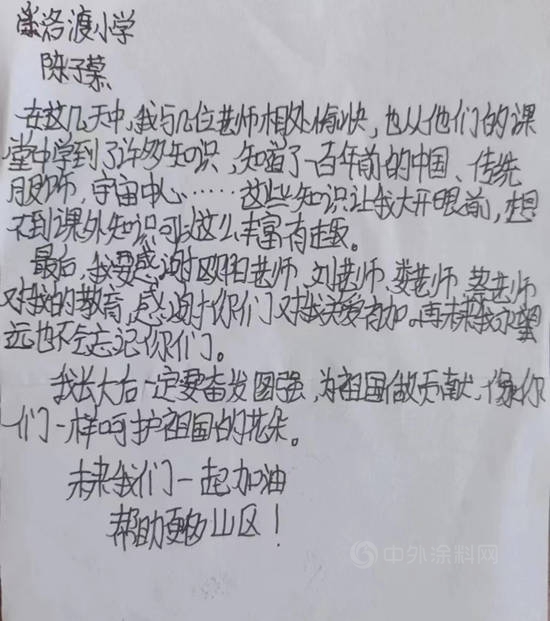 洛渡小学
陈子荣
在这几天中,我与几位老师相处愉快,也从他们的课
堂中学到了许多知识,知道了一百年前的中国、传统
服饰,宇宙中心……这些知识让我大开眼前,想
不到课外知识可以这么丰富有趣。
最后,我要感谢欧阳老师、刘老师、娄老师、蔡老师
对我的教育,感谢你们对我关爱有加。再未来我永
远也不会忘记你们。
我长大后一定要奋发图强,为祖国做贡献,像你
们一样呵护祖国的花朵。
未来我们一起加油
帮助更多山区!
中外涂料网